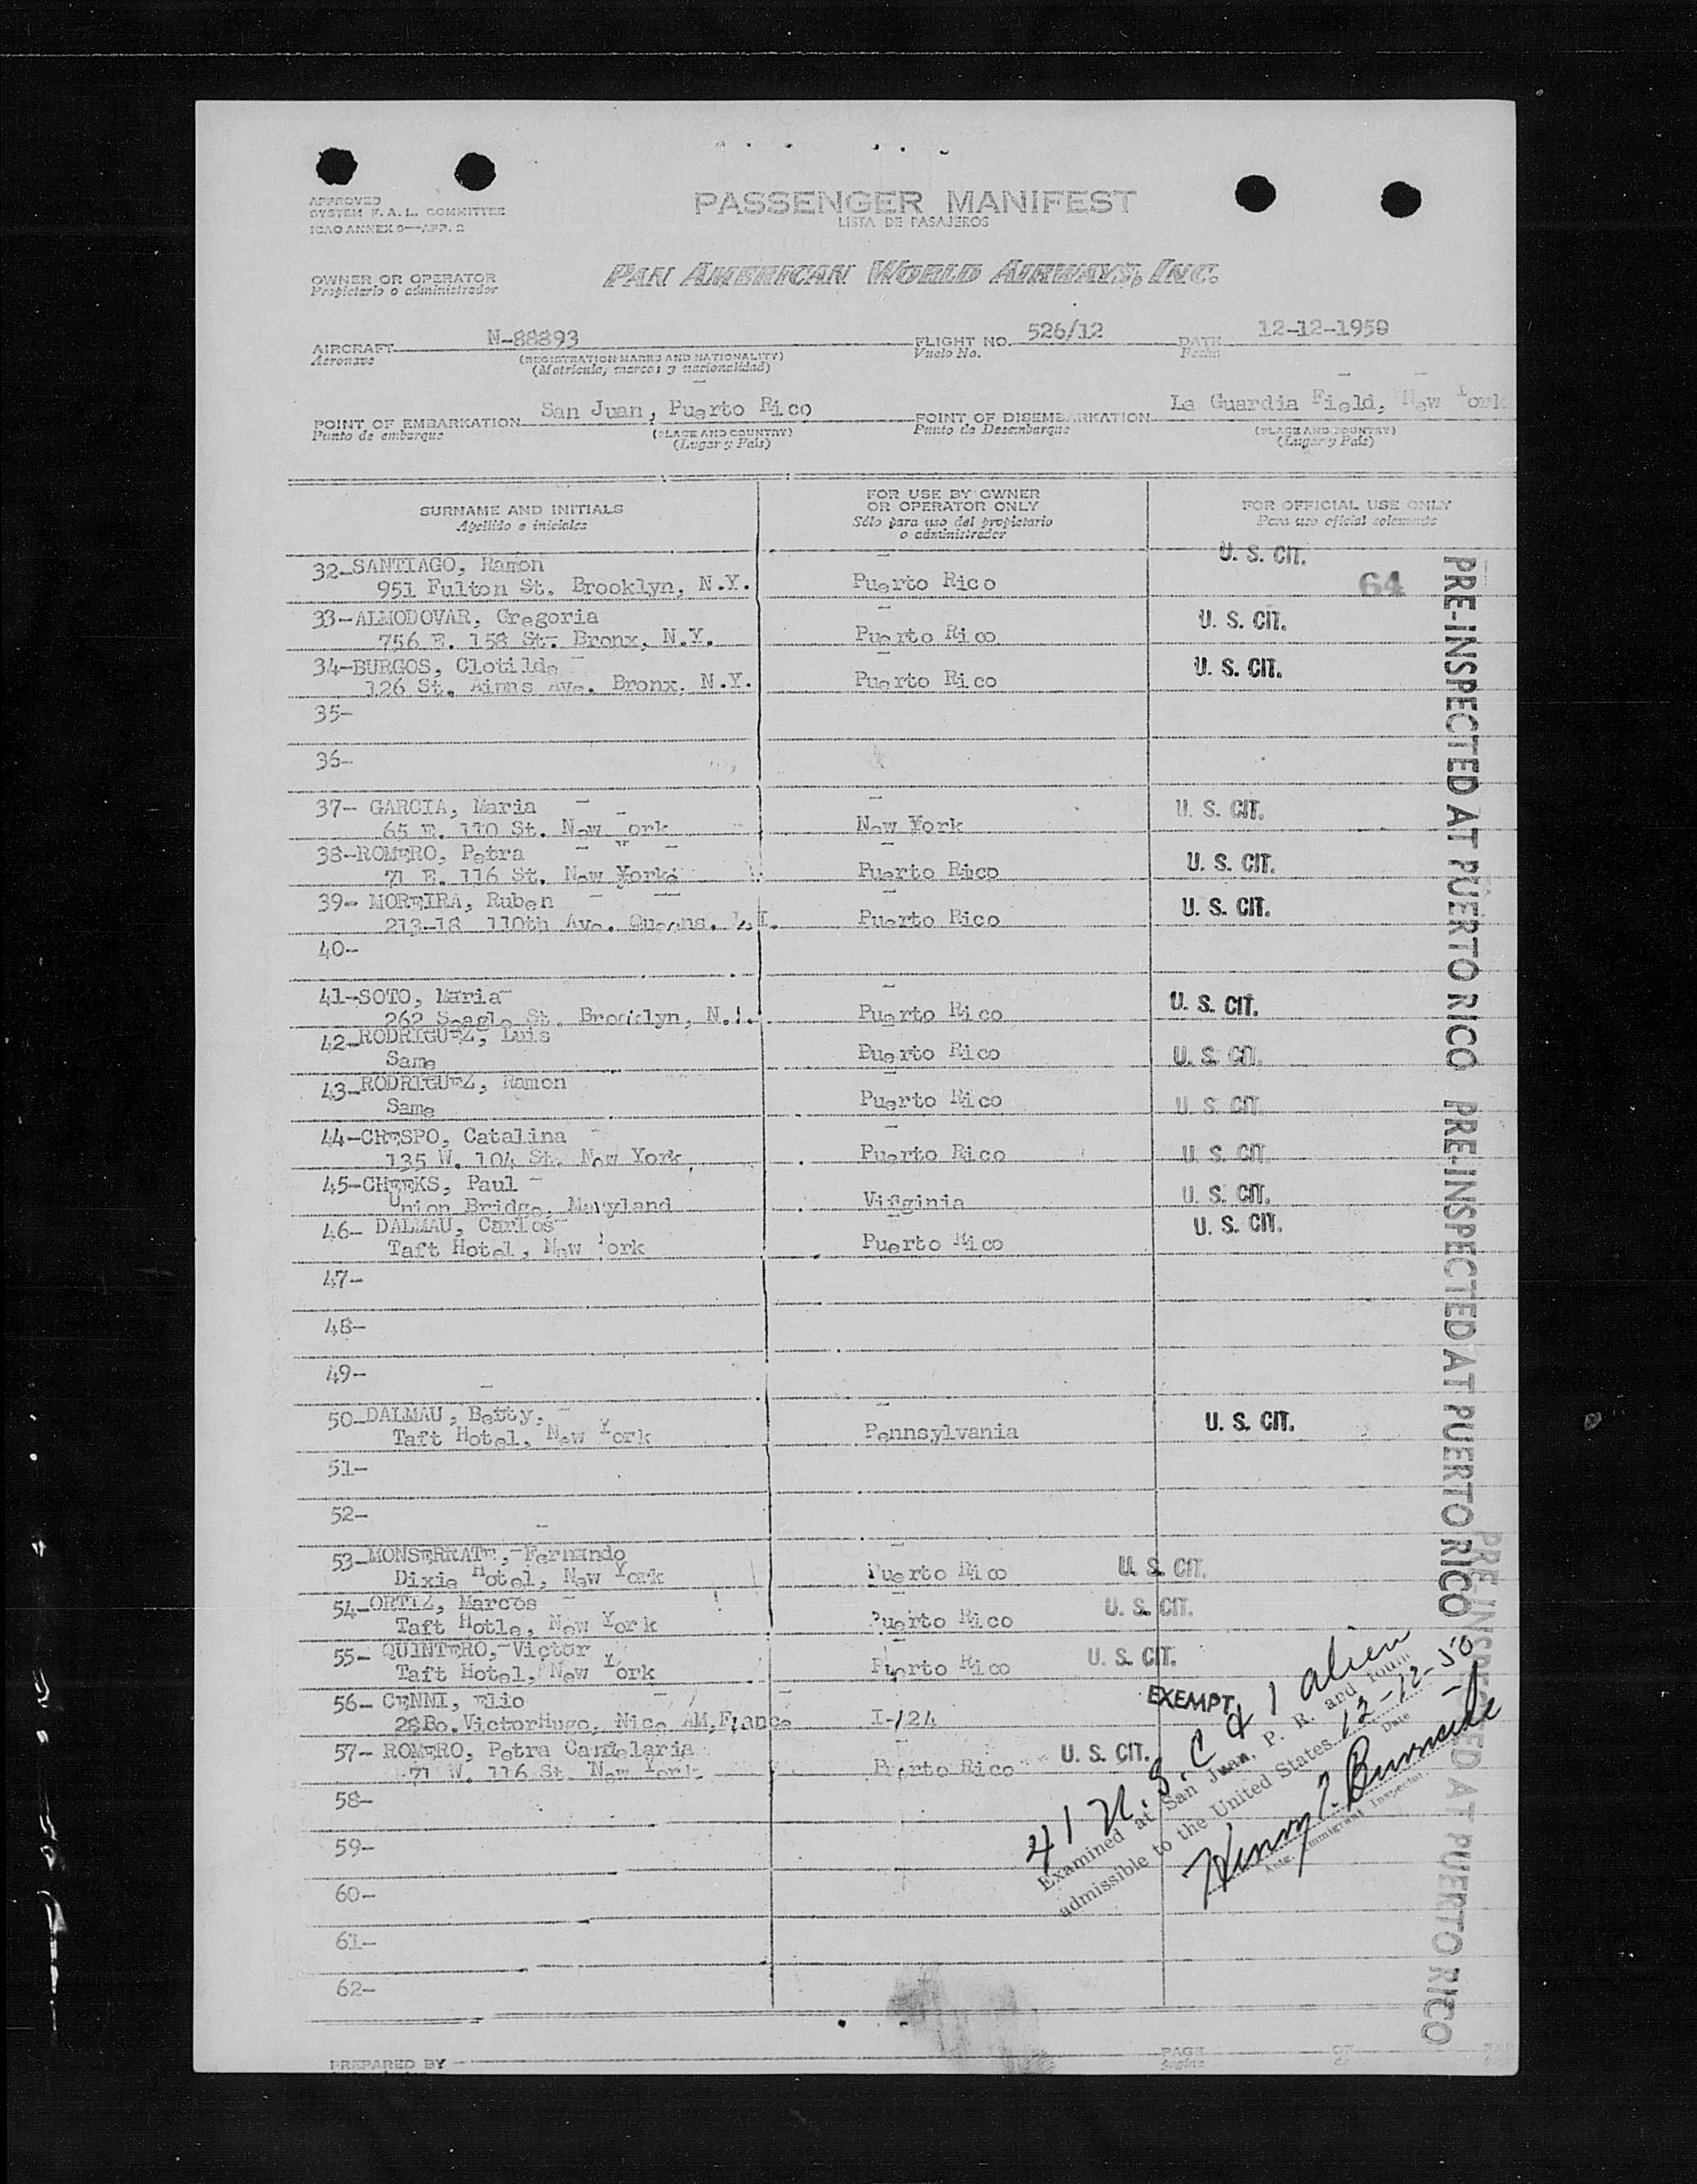 APPROVED
SYSTEM F.A.L. COMMITTEE
ICAO ANNEX 9—APP. 2
PASSENGER MANIFEST
LISTA DE PASAJEROS
OWNER OR OPERATOR
Propietario o administrador
PAN AMERICAN WORLD AIRWAYS, INC.
AIRCRAFT N-88893 FLIGHT NO. 526/12 DATE 12-12-1950
Aeronave (REGISTRATION MARKS AND NATIONALITY) Vuelo No. Fecha
(Matricula, marcas y nacionalidad)
POINT OF EMBARKATION San Juan, Puerto Rico POINT OF DISEMBARKATION La Guardia Field, New York
Punto de embarque (PLACE AND COUNTRY) Punto de Desembarque (PLACE AND COUNTRY)
(Lugar y País) (Lugar y País)
SURNAME AND INITIALS FOR USE BY OWNER OR OPERATOR ONLY FOR OFFICIAL USE ONLY
Apellido e iniciales Sólo para uso del propietario o administrador Para uso oficial solamente
32-SANTIAGO, Ramon U. S. CIT.
951 Fulton St. Brooklyn, N.Y. Puerto Rico 64
33-ALMODOVAR, Gregoria U. S. CIT.
756 E. 158 St. Bronx, N.Y. Puerto Rico
34-BURGOS, Clotilde U. S. CIT.
126 St. Ainns Ave. Bronx, N.Y. Puerto Rico
35-
36-
37- GARCIA, Maria U. S. CIT.
65 E. 110 St. New York New York
38-ROMERO, Petra U. S. CIT.
71 E. 116 St. New York Puerto Rico
39- MOREIRA, Ruben U. S. CIT.
213-18 110th Ave. Queens. L.I. Puerto Rico
40-
41-SOTO, Maria U. S. CIT.
262 Seagle St. Brooklyn, N.Y. Puerto Rico
42-RODRIGUEZ, Luis
Same Puerto Rico U. S. CIT.
43-RODRIGUEZ, Ramon
Same Puerto Rico U. S. CIT.
44-CRESPO, Catalina
135 W. 104 St. New York Puerto Rico U. S. CIT.
45-CHEEKS, Paul U. S. CIT.
Union Bridge, Maryland Virginia
46- DALMAU, Carlos U. S. CIT.
Taft Hotel, New York Puerto Rico
47-
48-
49-
50-DALMAU, Betty, U. S. CIT.
Taft Hotel, New York Pennsylvania
51-
52-
53-MONSERRATE, Fernando U. S. CIT.
Dixie Hotel, New York Puerto Rico
54-ORTIZ, Marcos U. S. CIT.
Taft Hotle, New York Puerto Rico
55- QUINTERO, Victor U. S. CIT.
Taft Hotel, New York Puerto Rico
56- CENNI, Elio EXEMPT
28Bo.VictorHugo, Nice AM,France I-124
57- ROMERO, Petra Candelaria U. S. CIT.
71 W. 116 St. New York Puerto Rico
58-
59-
60-
61-
62-
41 U.S.C & 1 alien
Examined at San Juan, P. R. and found
admissible to the United States 12-12-50
Date
Henry T. Burnside
Actg. Immigrant Inspector
PREPARED BY PAGE OF
página de
PRE-INSPECTED AT PUERTO RICO PRE-INSPECTED AT PUERTO RICO
PRE-INSPECTED AT PUERTO RICO